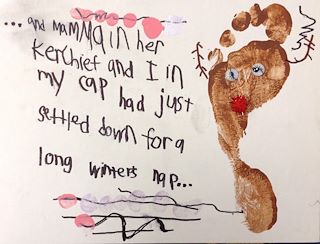 ...and mamma in her
kerchief and I in
my cap had just
settled down for a
long winters nap...